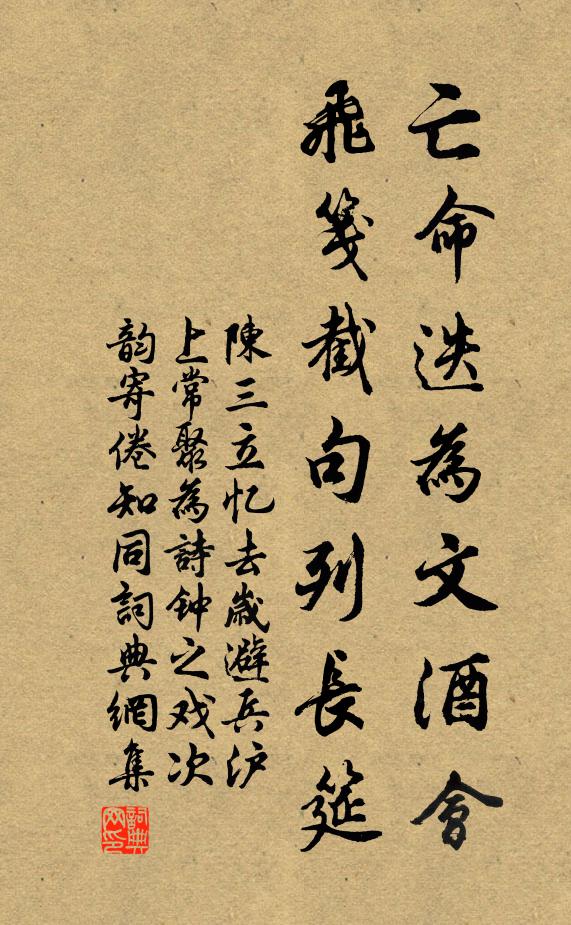 亡命迭為文酒會
飛箋截句列長筵
陳三立忆去歲避兵沪
上常聚為詩钟之戏次
韵寄倦知同詞典網集
詞典网印